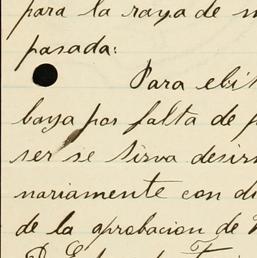 para la raya de
pasada:
Para
baya por falta de
ser se sirva
nariamente con
de la aprobacion de